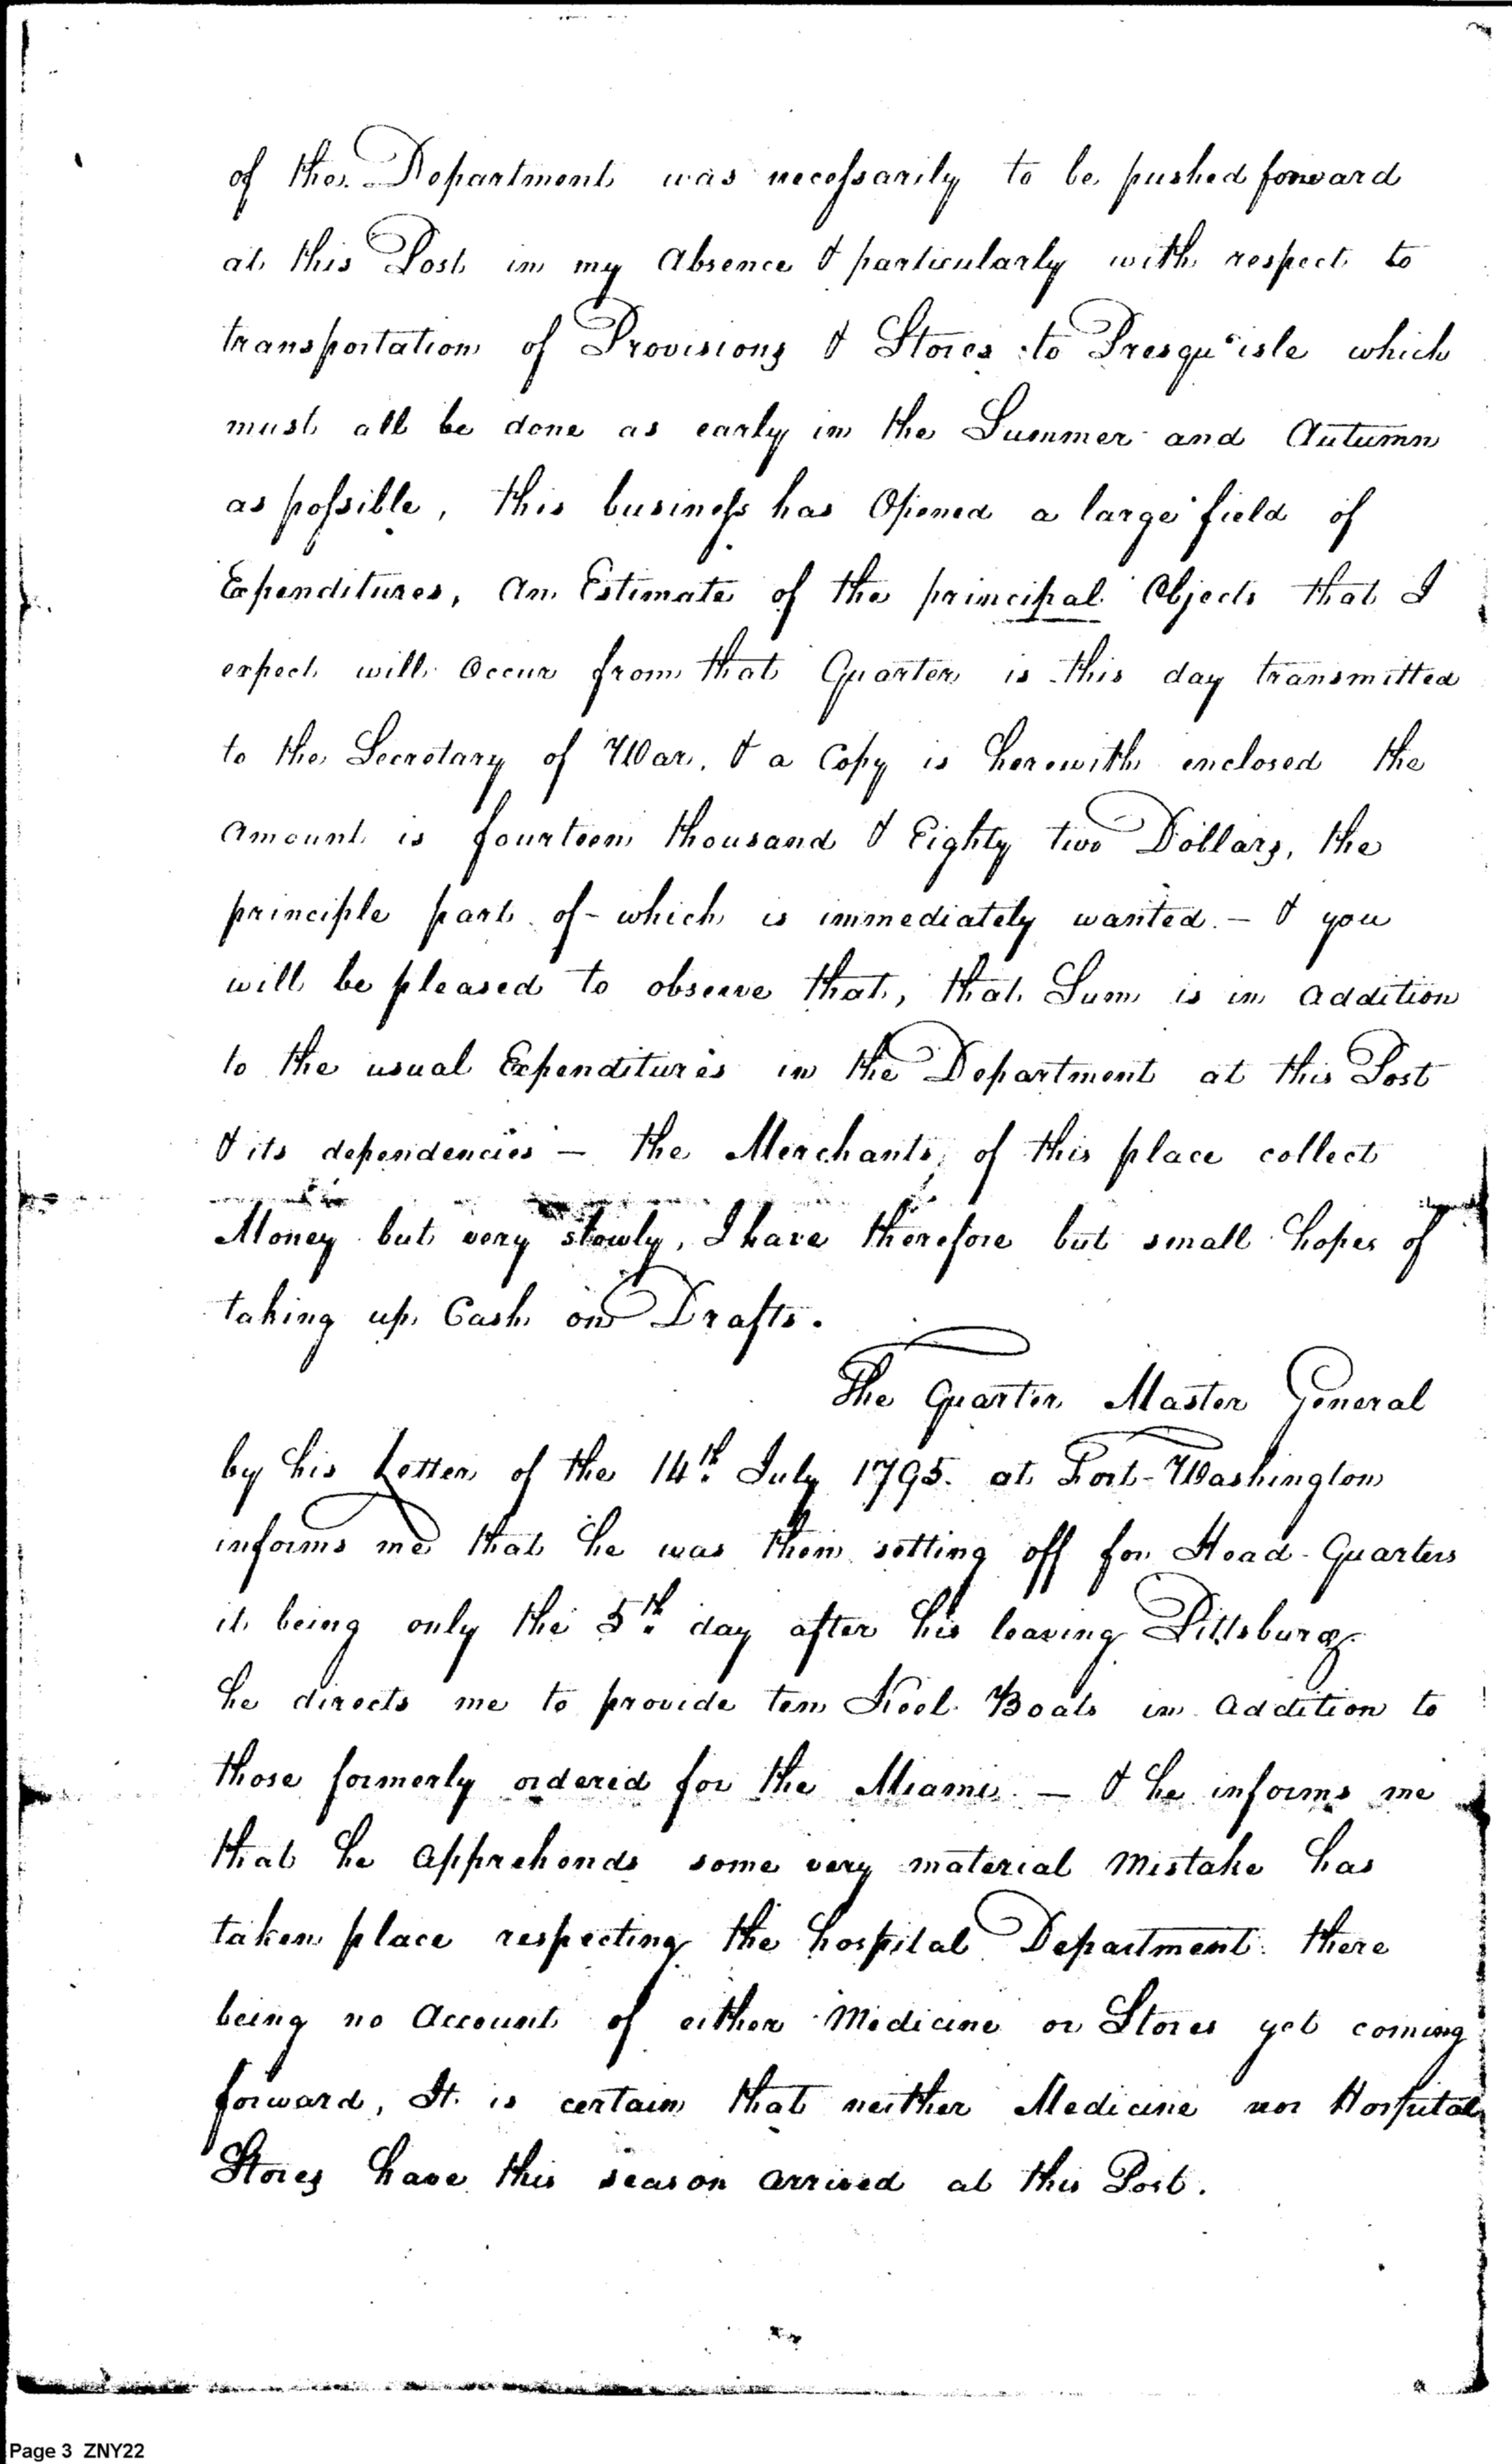 of the Department was necessarily to be pushed forward
at this Post in my Absence & particularly with respect to
transportation of Provisions & Stores to Presqu'isle which
must all be done as early in the Summer and Autumn
as possible, this business has Opened a large field of
Expenditures, An Estimate of the principal Objects that I
expect will Occur from that Quarter is this day transmitted
to the Secretary of War, & a Copy is herewith enclosed the
Amount is fourteen thousand & Eighty two Dollars, the
principle part of - which is immediately wanted. - & you
will be pleased to observe that, that Sum is in addition
to the usual Expenditures in the Department at this Post
& its dependencies - the Merchants, of this place collect
Money but very slowly, I have therefore but small hopes of
taking up Cash on Drafts.
The Quarter Master General
by his Letter of the 14th July 1795. at Fort-Washington
informs me that he was then setting off for Head-Quarters
it being only the 5th day after his leaving Pittsburg
he directs me to provide ten Keel Boats in Addition to
those formerly ordered for the Miamis. - & he informs me
that he Apprehends some very material Mistake has
taken place respecting the hospital Department. there
being no Account of either Medicine or Stores yet coming
forward, It is certain that neither Medicine nor Hospital
Stores have this season Arrived at this Post.
Page 3 ZNY22